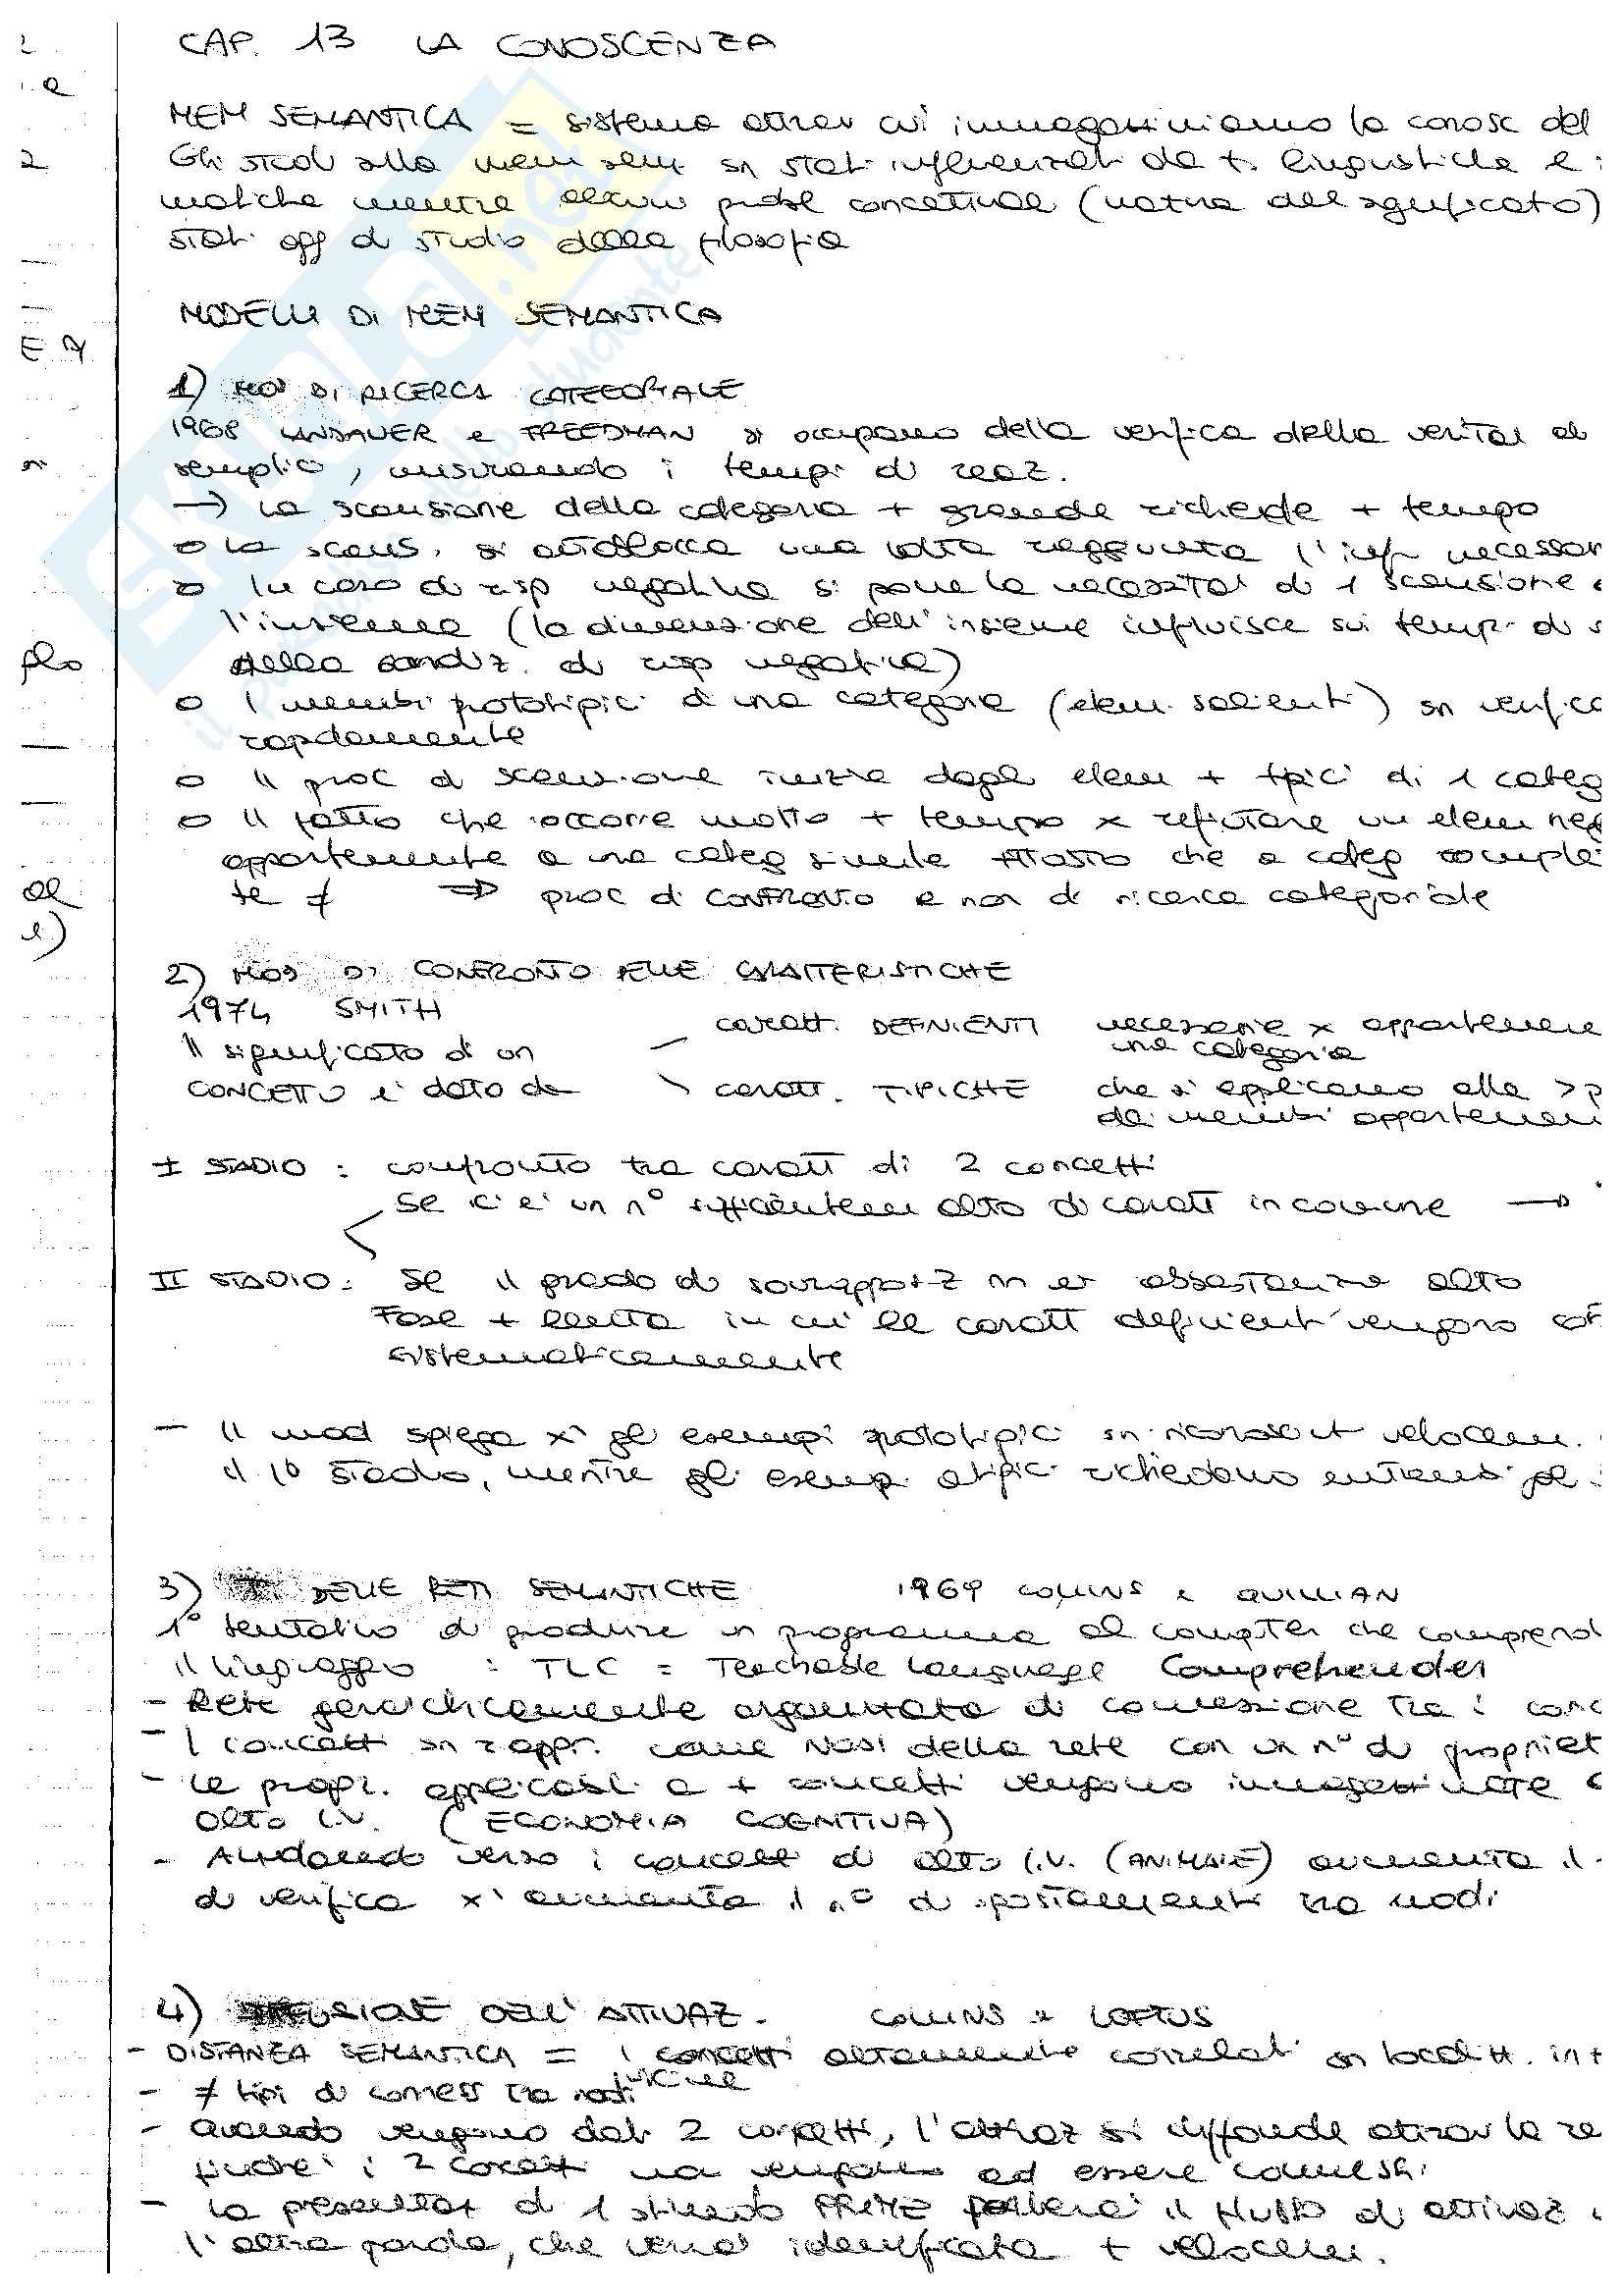 CAP. 13 LA CONOSCENZA
MEM SEMANTICA = sistema attrav cui immagazziniamo la conosc del
Gli studi sulla mem sem sn stati influenzati da t. linguistiche e
matiche mentre alcuni probl concettuali (natura del significato)
stati ogg di studio della filosofia
MODELLI DI MEM SEMANTICA
1) MOD DI RICERCA CATEGORIALE
1968 LANDAUER e FREEDMAN si occupano della verifica della verità di
semplici, misurando i tempi di reaz.
→ La scansione della categoria + grande richiede + tempo
o La scans. si autoblocca una volta raggiunta l'inf necessar
o In caso di risp negativa si pone la necessità di 1 scansione
l'insieme (la dimensione dell'insieme influisce sui tempi di
della condiz. di risp negativa)
o I membri prototipici di una categoria (elem. salienti) sn verific
rapidamente
o Il proc di scansione inizia dagli elem + tipici di 1 categ
o Il fatto che occorre molto + tempo x rifiutare un elem neg
appartenente a una categ simile piuttosto che a categ comple
te ≠ ⇒ proc di CONFRONTO e non di ricerca categoriale
2) MOD DI CONFRONTO DELLE CARATTERISTICHE
1974 SMITH
caratt. DEFINENTI necessarie x appartenere
una categoria
Il significato di un
CONCETTO è dato da
caratt. TIPICHE che si applicano alla >p
dei membri appartenen
I STADIO : confronto tra caratt di 2 concetti
Se c'è un n° sufficientem alto di caratt in comune →
II STADIO : Se il grado di sovrappos+z nn è abbastanza alto
Fase + lenta in cui le caratt definienti vengono
sistematicamente
- Il mod spiega xì gli esempi prototipici sn riconosciut velocem.
il 1° stadio, mentre gli esempi atipici richiedono entrambi gli
3) DELLE RETI SEMANTICHE 1969 COLLINS e QUILLIAN
1° tentativo di produrre un programma al computer che comprend
il linguaggio : TLC = Teachable Language Comprehender
- Rete gerarchicamente organizzata di connessione tra i conc
- I concetti sn rappr. come NODI della rete con un n° di propriet
- Le propr. applicabili a + concetti vengono immagazzinate
alto LIV. (ECONOMIA COGNITIVA)
- Andando verso i concetti di alto LIV. (ANIMALE) aumenta il
di verifica xì aumenta il n° di spostamenti tra nodi
4) DIFFUSIONE DELL'ATTIVAZ. COLLINS e LOFTUS
- DISTANZA SEMANTICA = i concetti altamente correlati sn localizz. in +
vicine
- ≠ tipi di conness tra nodi
- Quando vengono dati 2 concetti, l'attivaz si diffonde attrav la re
finché i 2 concetti nn vengono ad essere connessi
- La presentaz di 1 stimolo PRIME porterà il flusso di attivaz
l'altra parola, che verrà identificata + velocem.